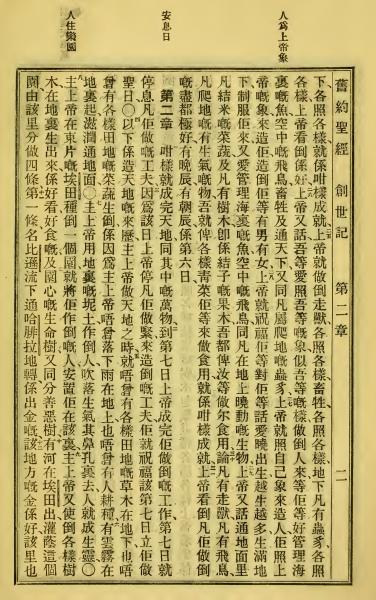 人爲上帝象
安息日
人住樂園
舊約聖經 創世記 第二章 二
下各照各樣就係咁樣成就上帝就做倒走獸各照各樣畜牲各照各樣地下凡有蟲豸各照
各樣上帝看倒係好上帝又話吾等愛照吾等嘅象似吾等嘅樣做倒人來等佢等好管理海
裏嘅魚空中嘅飛鳥畜牲及通天下又同凡屬爬地嘅蟲豸上帝就照自己象來造人佢照上
帝嘅象來造佢造佢等有男有女上帝就祝福佢等對佢等話愛曉出生越生越多生滿地
下制服佢來又愛管理海裏嘅魚空中嘅飛鳥同凡在地上曉動嘅生物上帝又話通地面里
凡結米嘅菜蔬及凡有樹木卽係結子嘅果木吾都俾汝等做尔食用論凡有走獸凡有飛鳥
凡爬地嘅有生氣嘅物吾就俾各樣青菜佢等來做食用就係咁樣成就上帝看倒凡佢做倒
嘅盡都極好有晚辰有朝辰係第六日
第二章 咁樣就成完天地同其中嘅萬物到第七日上帝成完佢做倒嘅工作第七日就
停息凡佢做嘅工夫因爲該日上帝停凡佢做緊來造倒嘅工夫佢就祝福該第七日立佢做
聖日〇以下係造天地嘅來歷主上帝做天地之時就唔曾有各樣田地嘅草木在地下也唔
曾有各樣田地嘅菜蔬生倒係因爲主上帝唔曾落下雨在地上也唔曾有人耕種有雲霧在
地裏起滋潤通地面〇主上帝用地裏嘅坭土作倒人吹落生氣其鼻孔裏去人就成生靈〇
主上帝在東片嘅埃田種倒一個園就將佢作倒嘅人安置佢在該裏主上帝又使倒各樣樹
木在地裏生出來係好看好食嘅及園心嘅生命樹又同分善惡樹有河在埃田出灌蔭這個
園由該里分做四條第一條名比遜流下通哈腓拉地轉係出金嘅該地方嘅金係好該里也